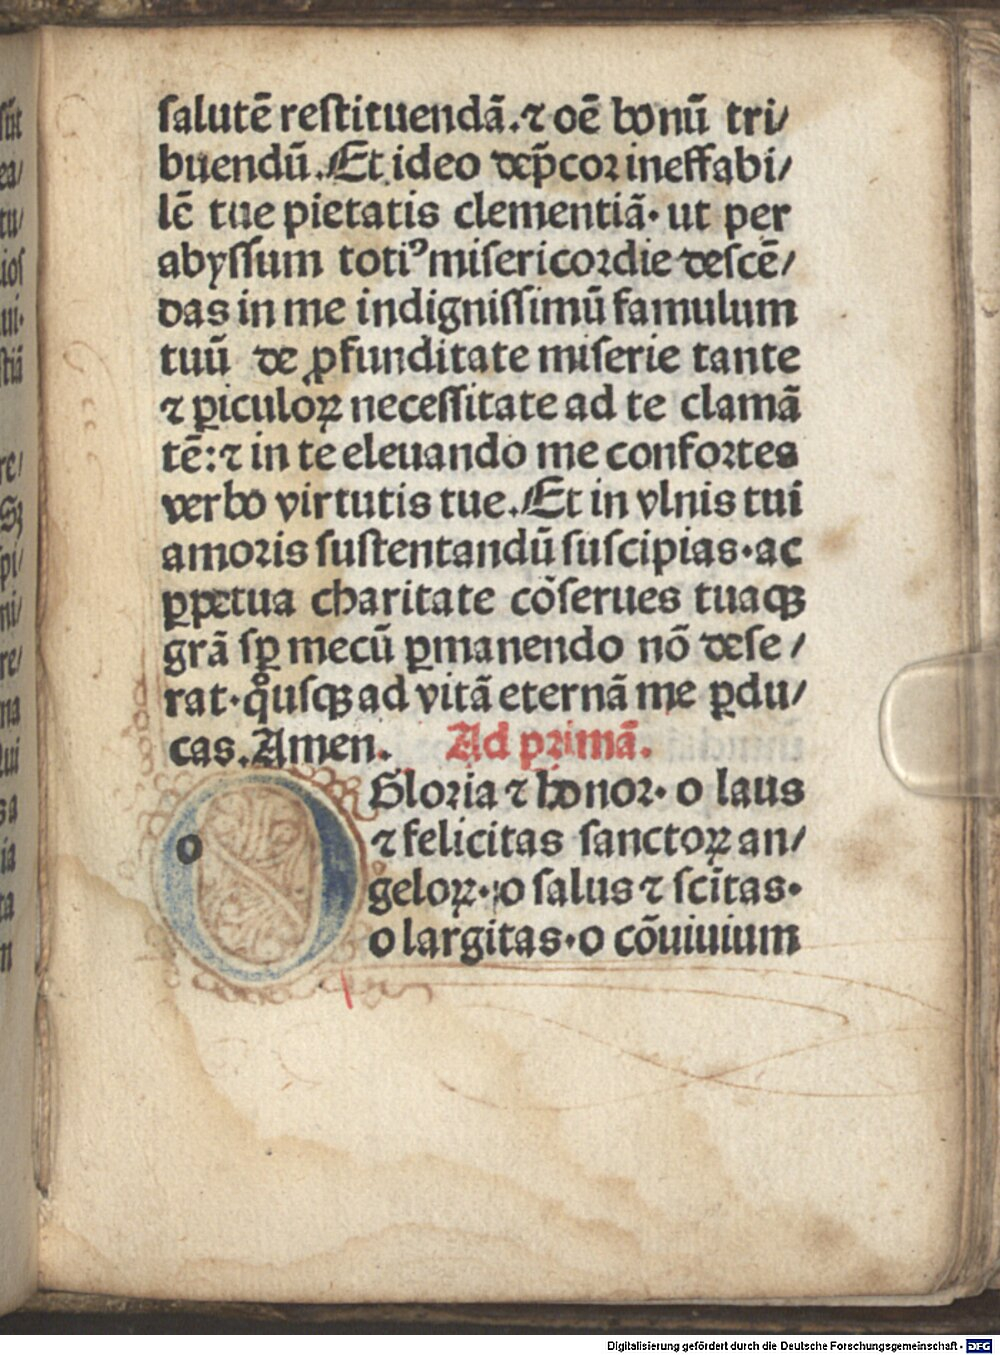 salutē restituendā. ⁊ oē bonū tri/
buendū. Et ideo dep̄cor ineffabi/
lē tue pietatis clementiā· ut per
abyssum totiꝰ misericordie descē/
das in me indignissimū famulum
tuū de ꝓfunditate miserie tante
⁊ ꝑiculoꝝ necessitate ad te clamā
tē: ⁊ in te eleuando me confortes
verbo virtutis tue. Et in vlnis tui
amoris sustentandū suscipias· ac
ꝑpetua charitate cōserues tuaqꝫ
grā sꝑ mecū ꝑmanendo nō dese/
rat· qͦusqꝫ ad vitā eternā me ꝑdu/
cas. Amen. Ad primā.
o Gloria ⁊ honor· o laus
⁊ felicitas sanctoꝝ an/
geloꝝ· o salus ⁊ scītas·
o largitas· o cōuiuium
Digitalisierung gefördert durch die Deutsche Forschungsgemeinschaft - DFG